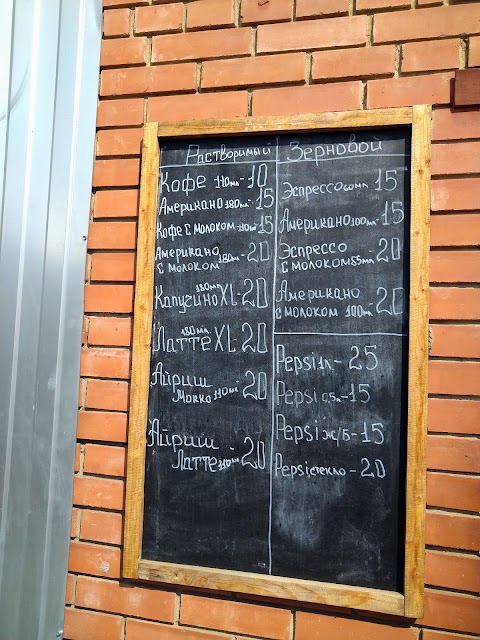 Растворимый
Кофе 110мл-10
Американо 180мл-15
Кофе с молоком-110мл-15
Американо
с молоком 180мл-20
180мл
Капучино XL-20
180мл
Латте XL-20
Айриш
Мокко 110мл-20
Айриш
Латте 110мл-20
Зерновой
Эспрессо 60мл 15
Американо 100мл-15
Эспрессо
с молоком 85мл-20
Американо
с молоком 100мл-20
Pepsi 1л-25
Pepsi 0,5л-15
Pepsi ж/б-15
Pepsi стекло-20